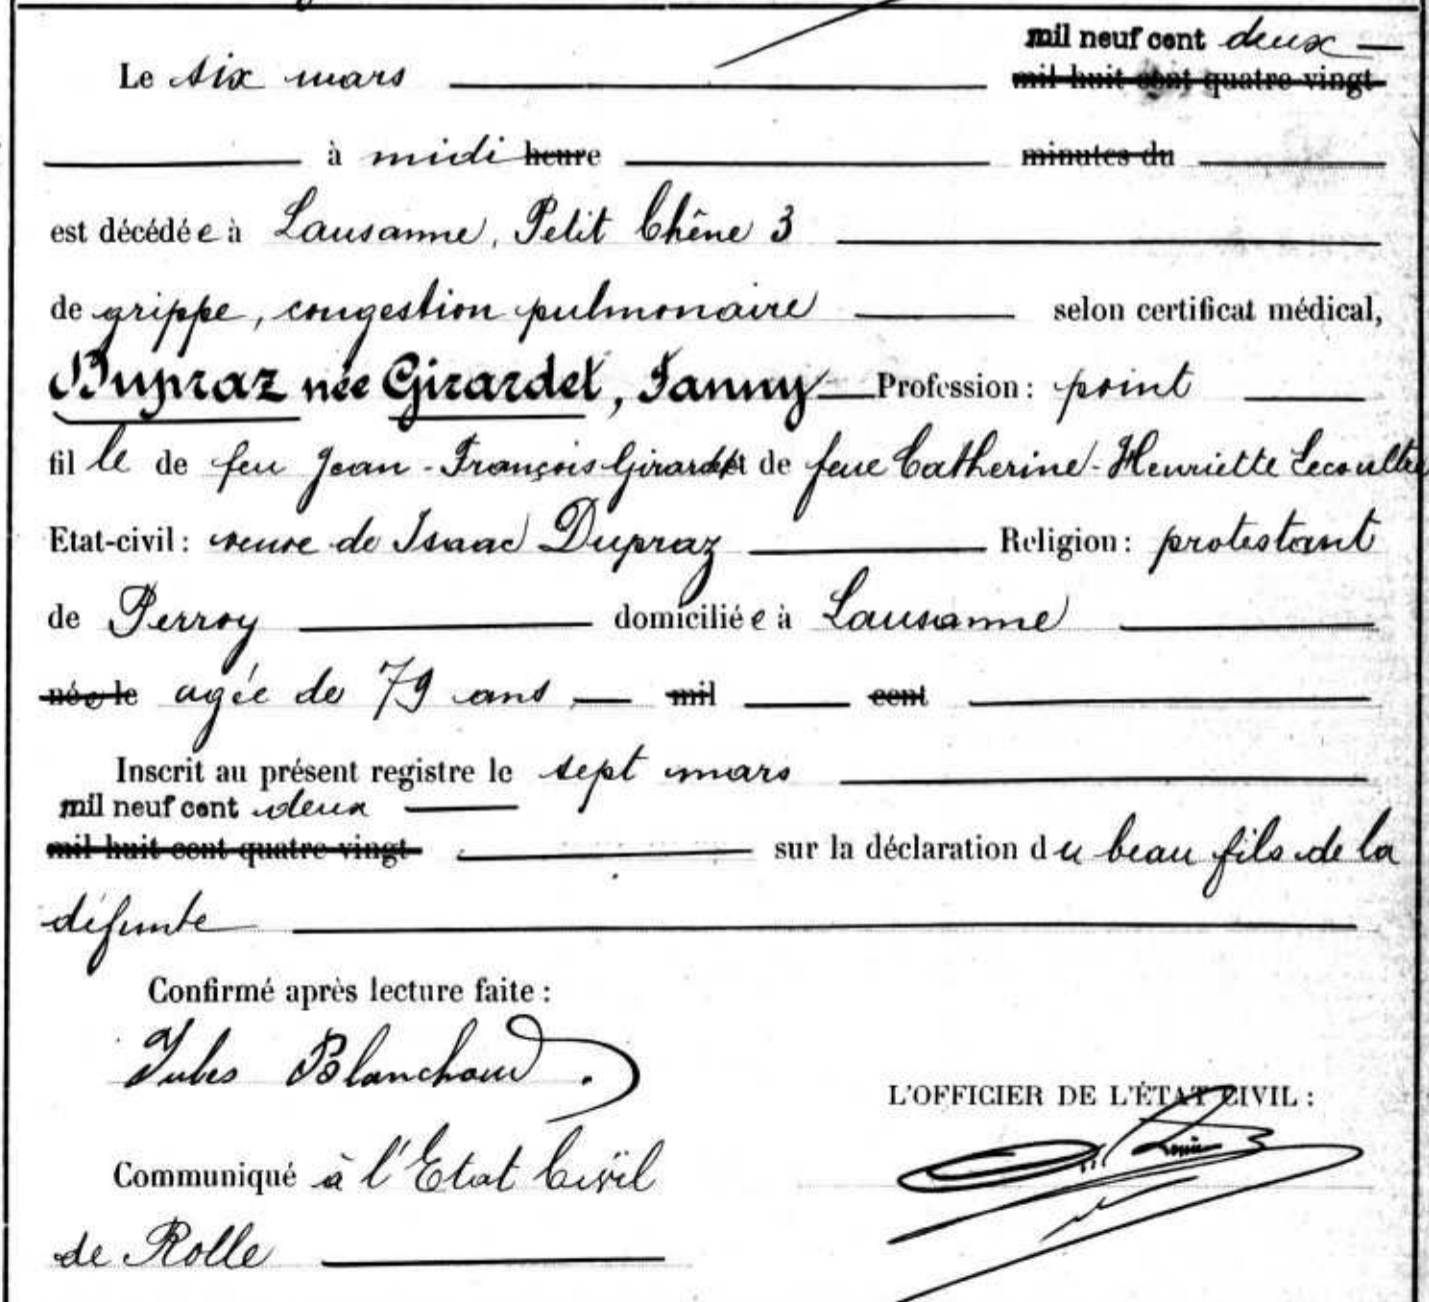 mil neuf cent deux
Le six mars mil huit cent quatre-vingt
à midi heure minutes du
est décédée à Lausanne, Petit Chêne 3
de grippe, congestion pulmonaire selon certificat médical,
Dupraz née Girardet, Fanny Profession: point
fille de feu Jean-François Girardet et de feue Catherine-Henriette Lecoultre
Etat-civil: veuve de Isaac Dupraz Religion: protestant
de Perroy domiciliée à Lausanne
née le agée de 79 ans mil cent
Inscrit au présent registre le sept mars
mil neuf cent deux
mil huit cent quatre-vingt sur la déclaration du beau fils de la
défunte
Confirmé après lecture faite:
Jules Blanchoud.
L'OFFICIER DE L'ÉTAT CIVIL:
Communiqué à l'Etat Civil
de Rolle